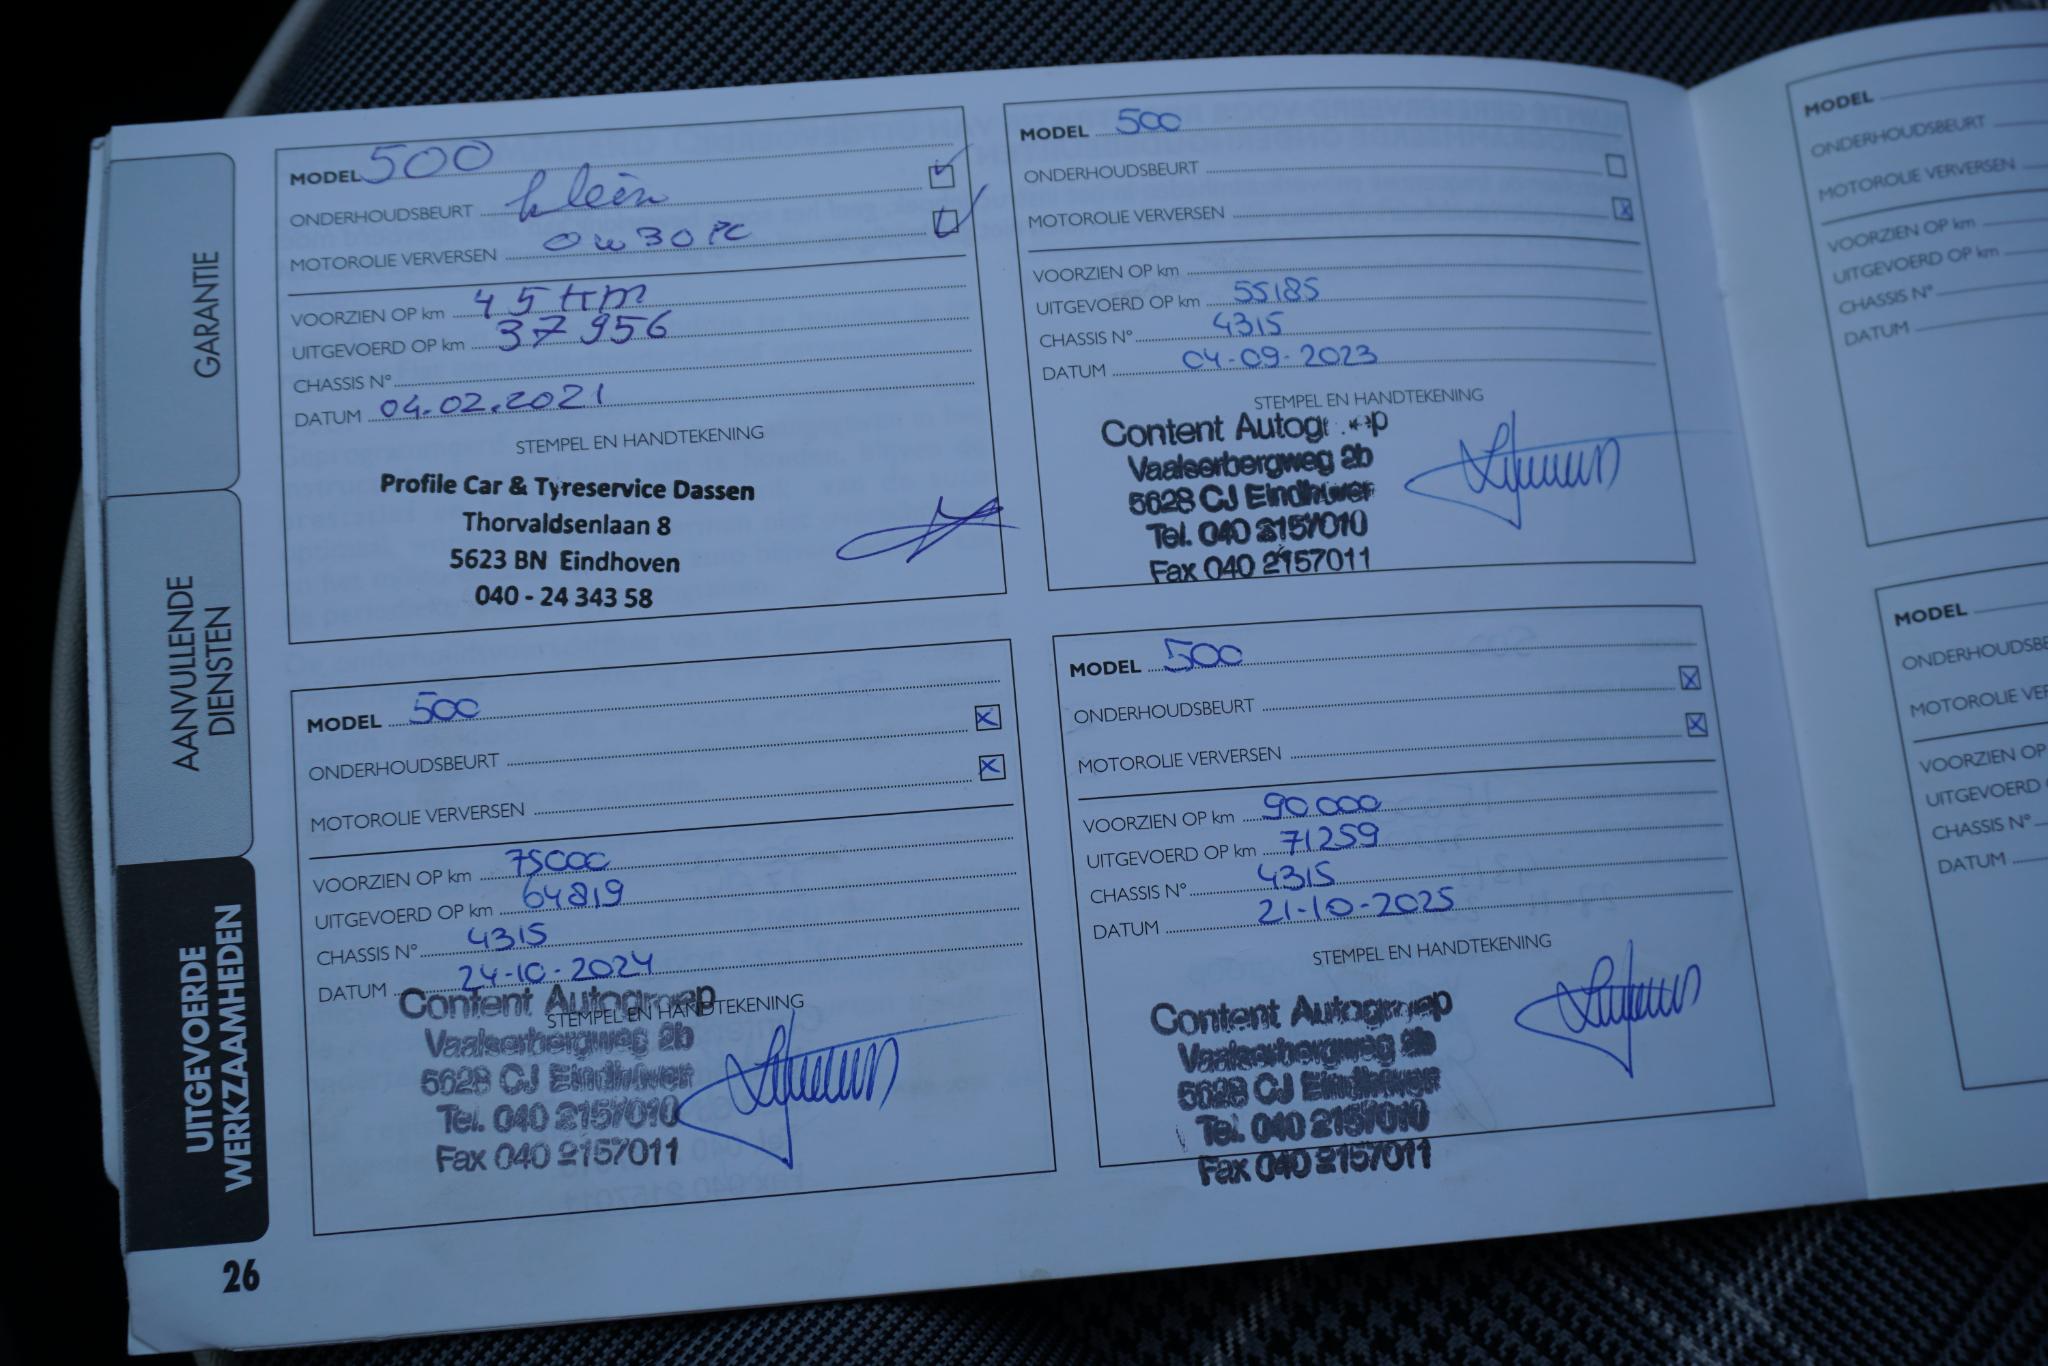 GARANTIE
AANVULLENDE
DIENSTEN
UITGEVOERDE
WERKZAAMHEDEN
MODEL 500
ONDERHOUDSBEURT klein
MOTOROLIE VERVERSEN 0w30
VOORZIEN OP km 45 tkm
UITGEVOERD OP km 37956
CHASSIS N°
DATUM 04.02.2021
STEMPEL EN HANDTEKENING
Profile Car & Tyreservice Dassen
Thorvaldsenlaan 8
5623 BN Eindhoven
040 - 24 343 58
MODEL 500
ONDERHOUDSBEURT
MOTOROLIE VERVERSEN
VOORZIEN OP km
UITGEVOERD OP km 55185
CHASSIS N° 4315
DATUM 04-09-2023
STEMPEL EN HANDTEKENING
Content Autogroep
Vaalserbergweg 2b
5628 CJ Eindhoven
Tel. 040 2157010
Fax 040 2157011
MODEL 500
ONDERHOUDSBEURT
MOTOROLIE VERVERSEN
VOORZIEN OP km 75000
UITGEVOERD OP km 64819
CHASSIS N° 4315
DATUM 24-10-2024
STEMPEL EN HANDTEKENING
Content Autogroep
Vaalserbergweg 2b
5628 CJ Eindhoven
Tel. 040 2157010
Fax 040 2157011
MODEL 500
ONDERHOUDSBEURT
MOTOROLIE VERVERSEN
VOORZIEN OP km 90.000
UITGEVOERD OP km 71259
CHASSIS N° 4315
DATUM 21-10-2025
STEMPEL EN HANDTEKENING
Content Autogroep
Vaalserbergweg 2b
5628 CJ Eindhoven
Tel. 040 2157010
Fax 040 2157011
26
MODEL
ONDERHOUDSBEURT
MOTOROLIE VERVERSEN
VOORZIEN OP km
UITGEVOERD OP km
CHASSIS N°
DATUM
MODEL
ONDERHOUDSBE
MOTOROLIE VER
VOORZIEN OP
UITGEVOERD
CHASSIS N°
DATUM